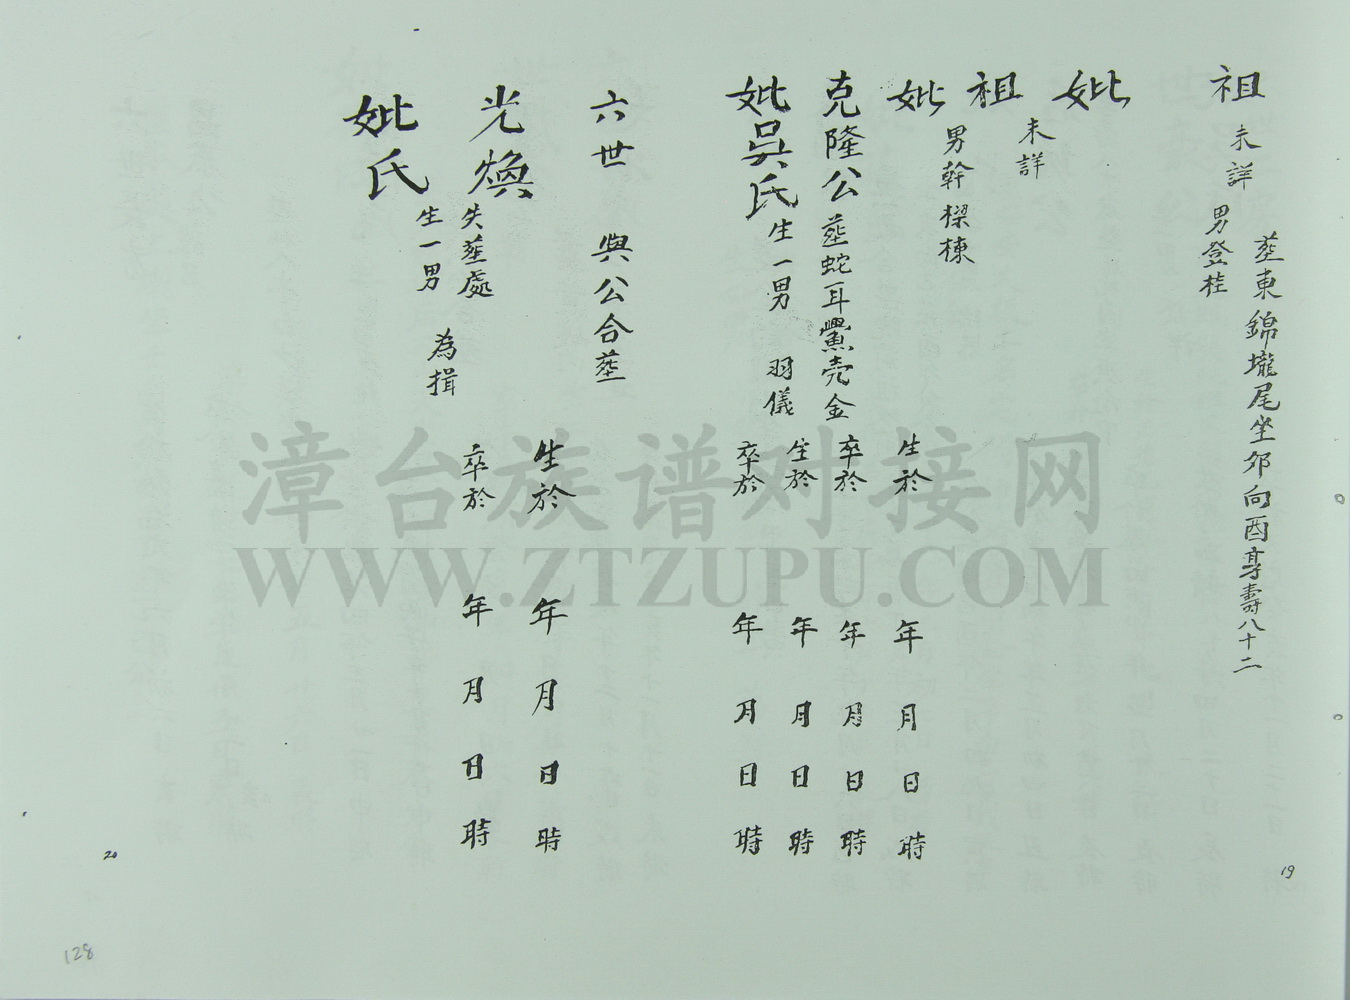 祖
未詳
男登桂
塟東錦壠尾坐夘向酉享壽八十二
妣
祖
未詳
妣
男幹樑棟
生於 年 月 日 時
克隆公
塟蛇耳鱟売金
卒於 年 月 日 時
妣吳氏
生一男 羽儀
生於 年 月 日 時
卒於 年 月 日 時
六世 與公合塟
光煥
失塟處
生於 年 月 日 時
妣氏
生一男 為揖
卒於 年 月 日 時
19
20
128
漳台族谱对接网
WWW.ZTZUPU.COM